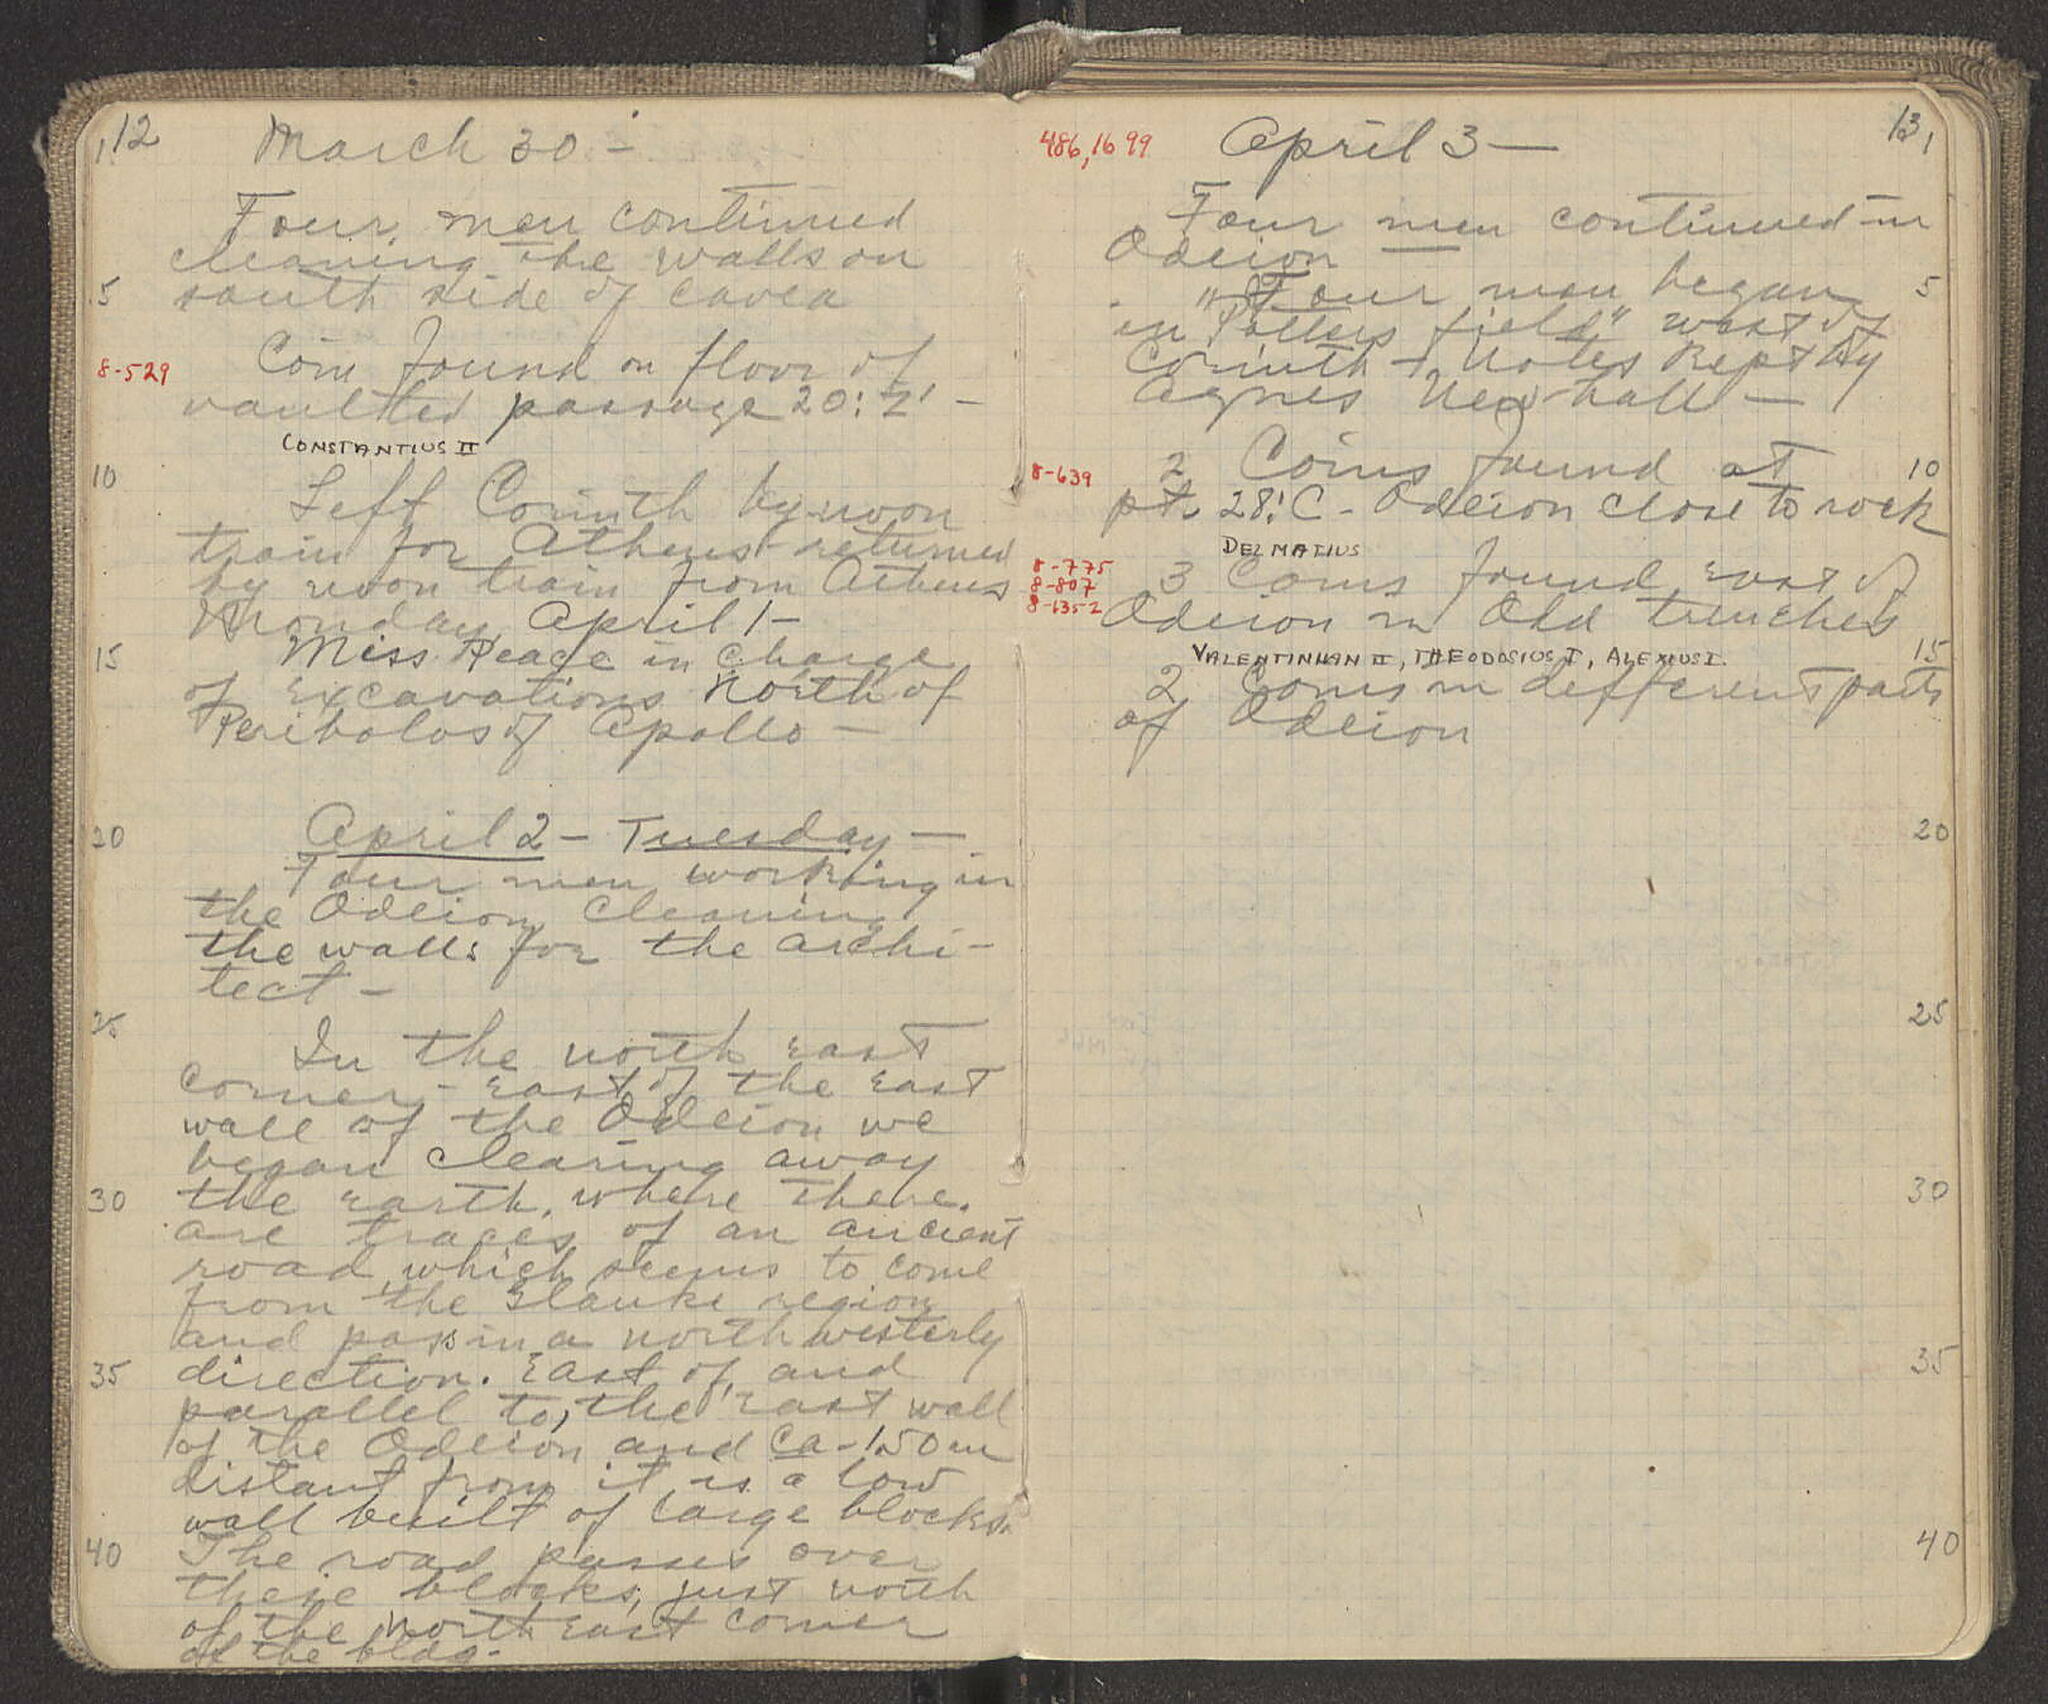 12 March 30 -
Four men continued
cleaning the walls on
5 south side of Cavea
8-529 Coin found on floor of
vaulted passage 20:Z' -
CONSTANTIUS II
10
Left Corinth by noon
train for Athens - returned
by noon train from Athens
Monday April 1 -
15 Miss Pease in charge
of excavations north of
Peribolos of Apollo -
20 April 2 - Tuesday -
Four men working in
the Odeion cleaning
the walls for the archi-
tect -
25
In the north east
corner - east of the east
wall of the Odeion we
began clearing away
30 the earth, where there
are traces of an ancient
road which seems to come
from the Glauke region
and pass in a north westerly
35 direction. East of, and
parallel to, the east wall
of the Odeion and ca - 1.50 m
distant from it is a low
wall built of large blocks.
40 The road passes over
these blocks, just north
of the north east corner
of the bldg.
13
486, 1699 April 3 -
Four men continued in
Odeion -
5 Four men began
in "Potters field" west of
Corinth - Notes kept by
Agnes Newhall -
8-639 2 Coins found at 10
pt. 28:C - Odeion close to rock
DELMATIUS
8-775
8-807 3 Coins found east of
8-1352 Odeion in Old trenches
VALENTINIAN II, THEODOSIUS I, ALEXIUS I. 15
2 Coins in different parts
of Odeion
20
25
30
35
40